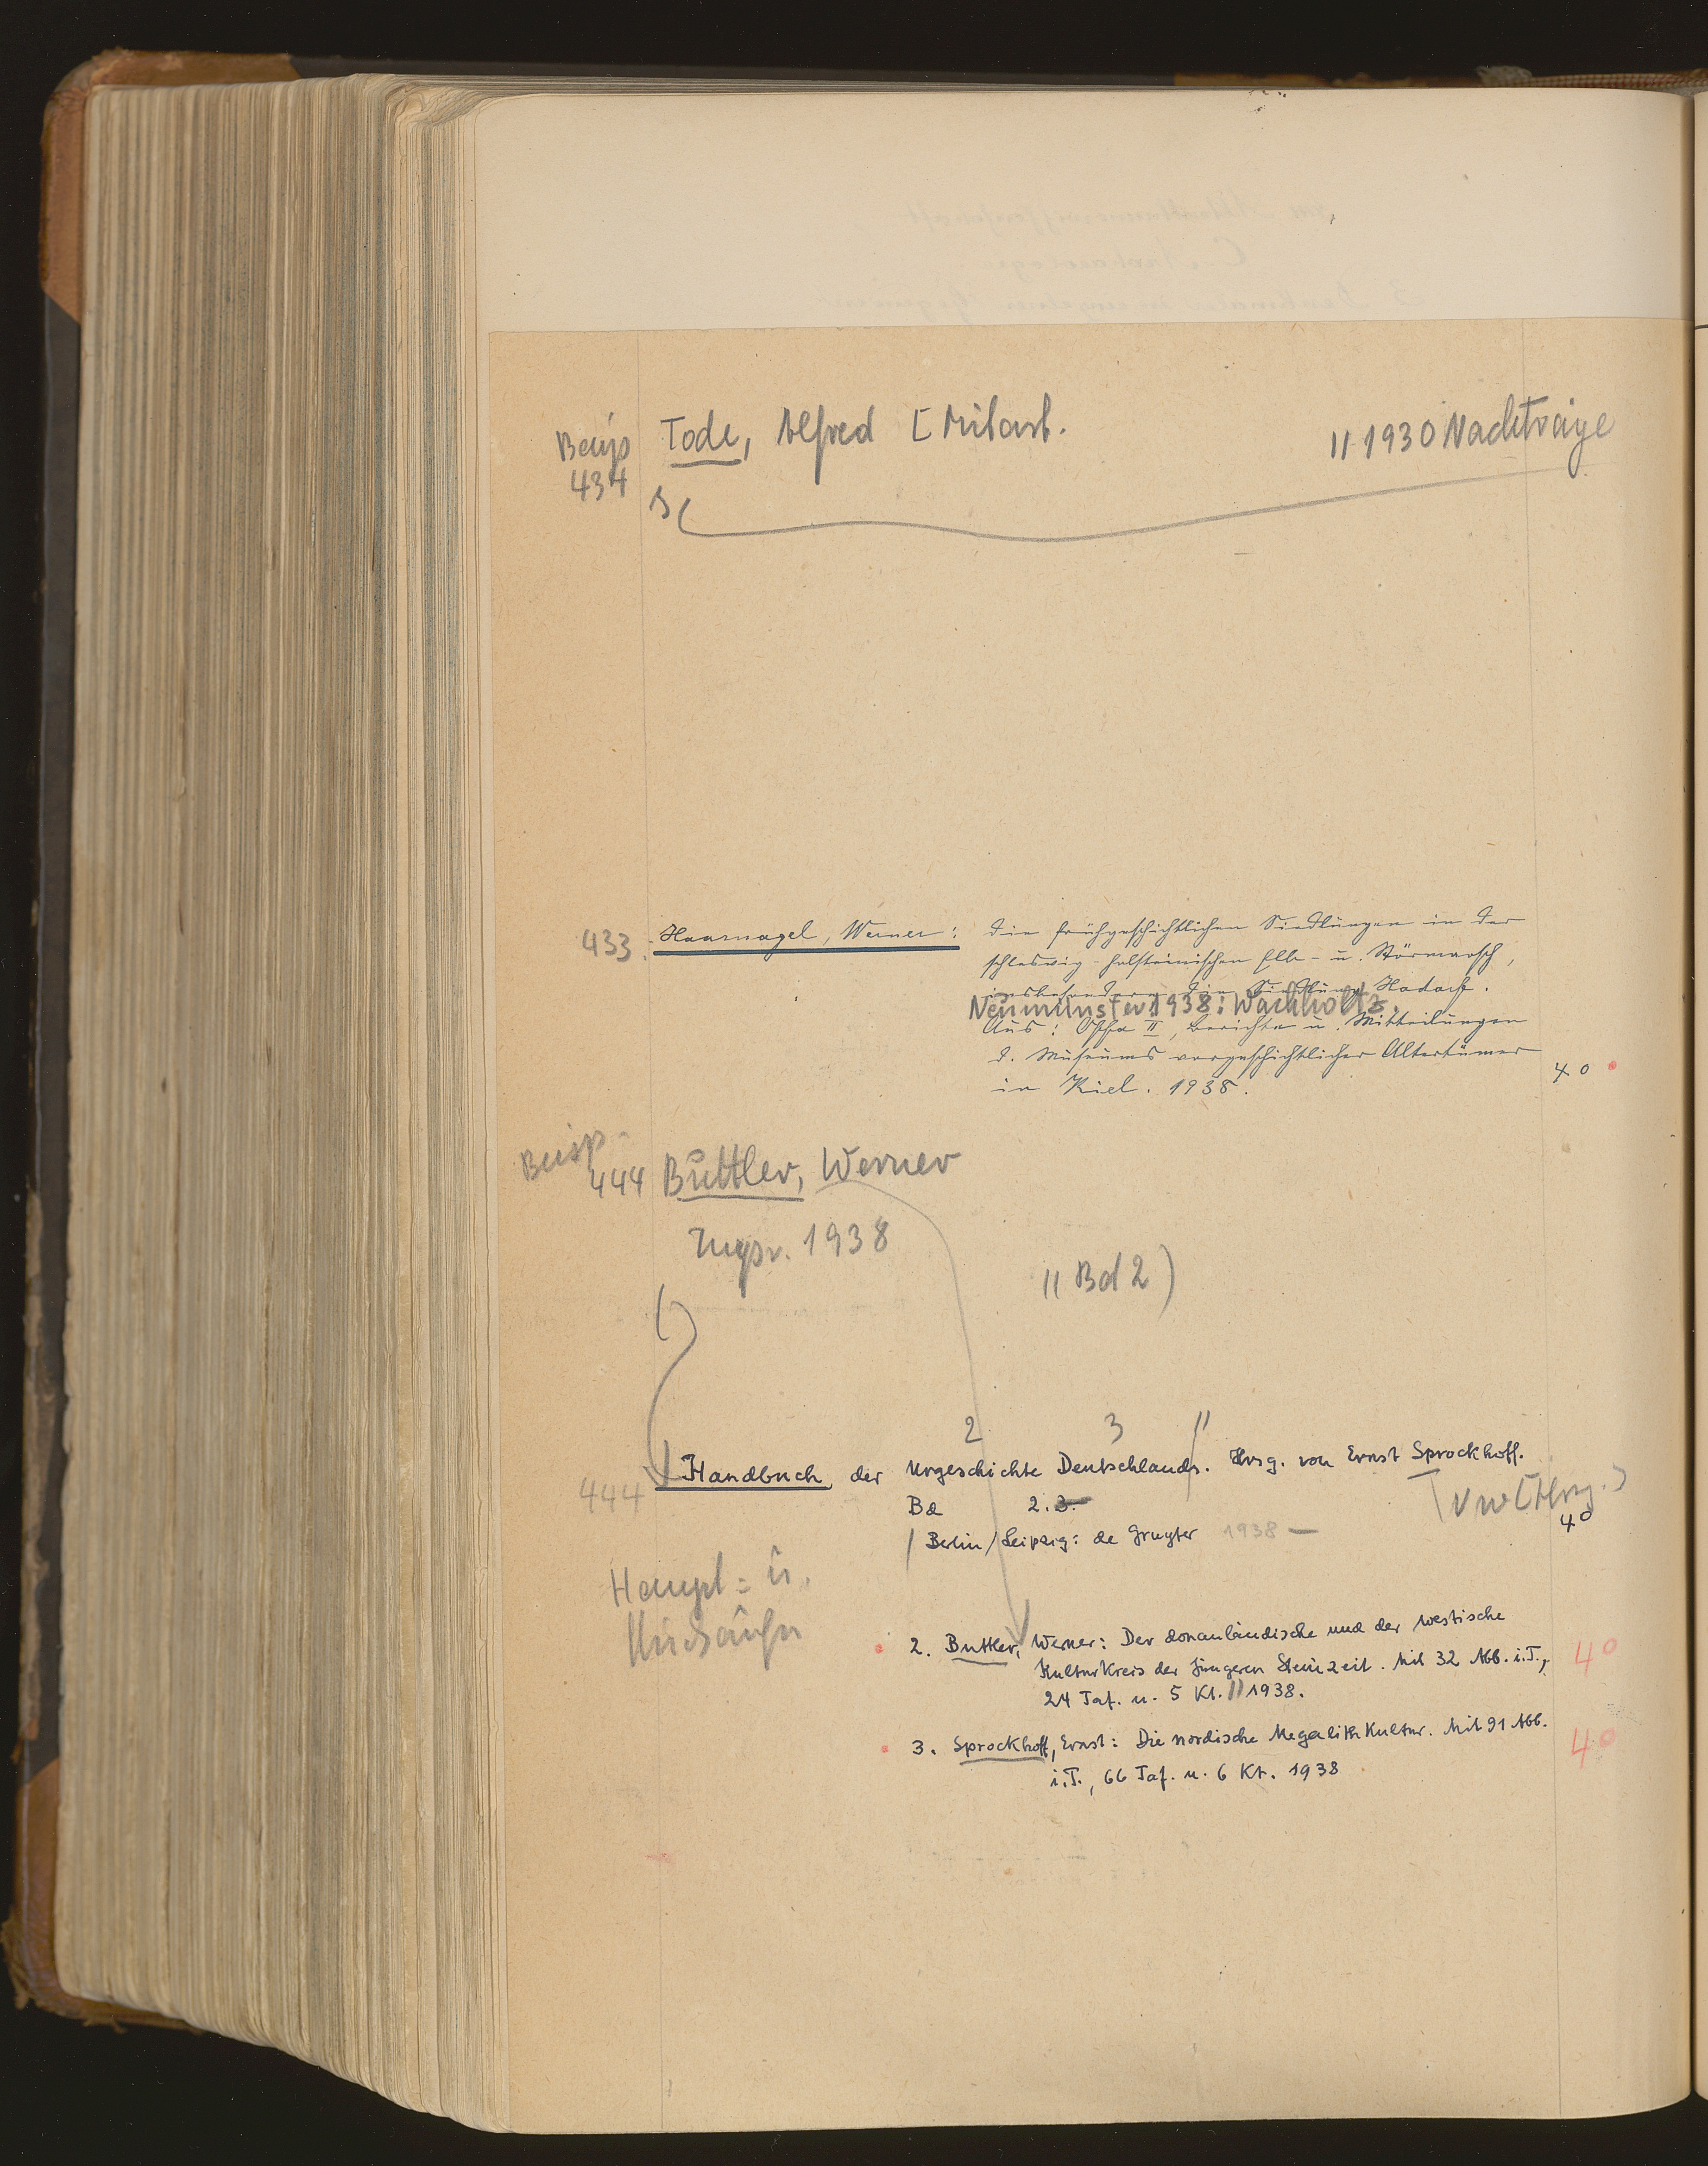 Beisp Tode, Alfred [Mitarb. // 1930 Nachträge
434
433. Haarnagel, Werner: Die frühgeschichtlichen Siedlungen in der
schleswig-holsteinischen Elb- u. Störmarsch,
insbesondere die Siedlung Hodorf.
Neumünster 1938: Wachholtz.
Aus: Offa II, Berichte u. Mitteilungen
d. Museums vorgeschichtlicher Altertümer
in Kiel. 1938. 4°
Beisp.
444 Buttler, Werner
1938
// Bd 2)
2 3 //
444 Handbuch der Urgeschichte Deutschlands. Hrsg. von Ernst Sprockhoff.
Bd 2. 3.
vw [Hrsg.]
4°
Berlin/Leipzig: de Gruyter 1938 —
Haupt= u.
2. Buttler, Werner: Der donauländische und der westische
Kulturkreis der jüngeren Steinzeit. Mit 32 Abb. i. T., 4°
24 Taf. u. 5 Kt. // 1938.
3. Sprockhoff, Ernst: Die nordische Megalithkultur. Mit 91 Abb. 4°
i. T., 66 Taf. u. 6 Kt. 1938